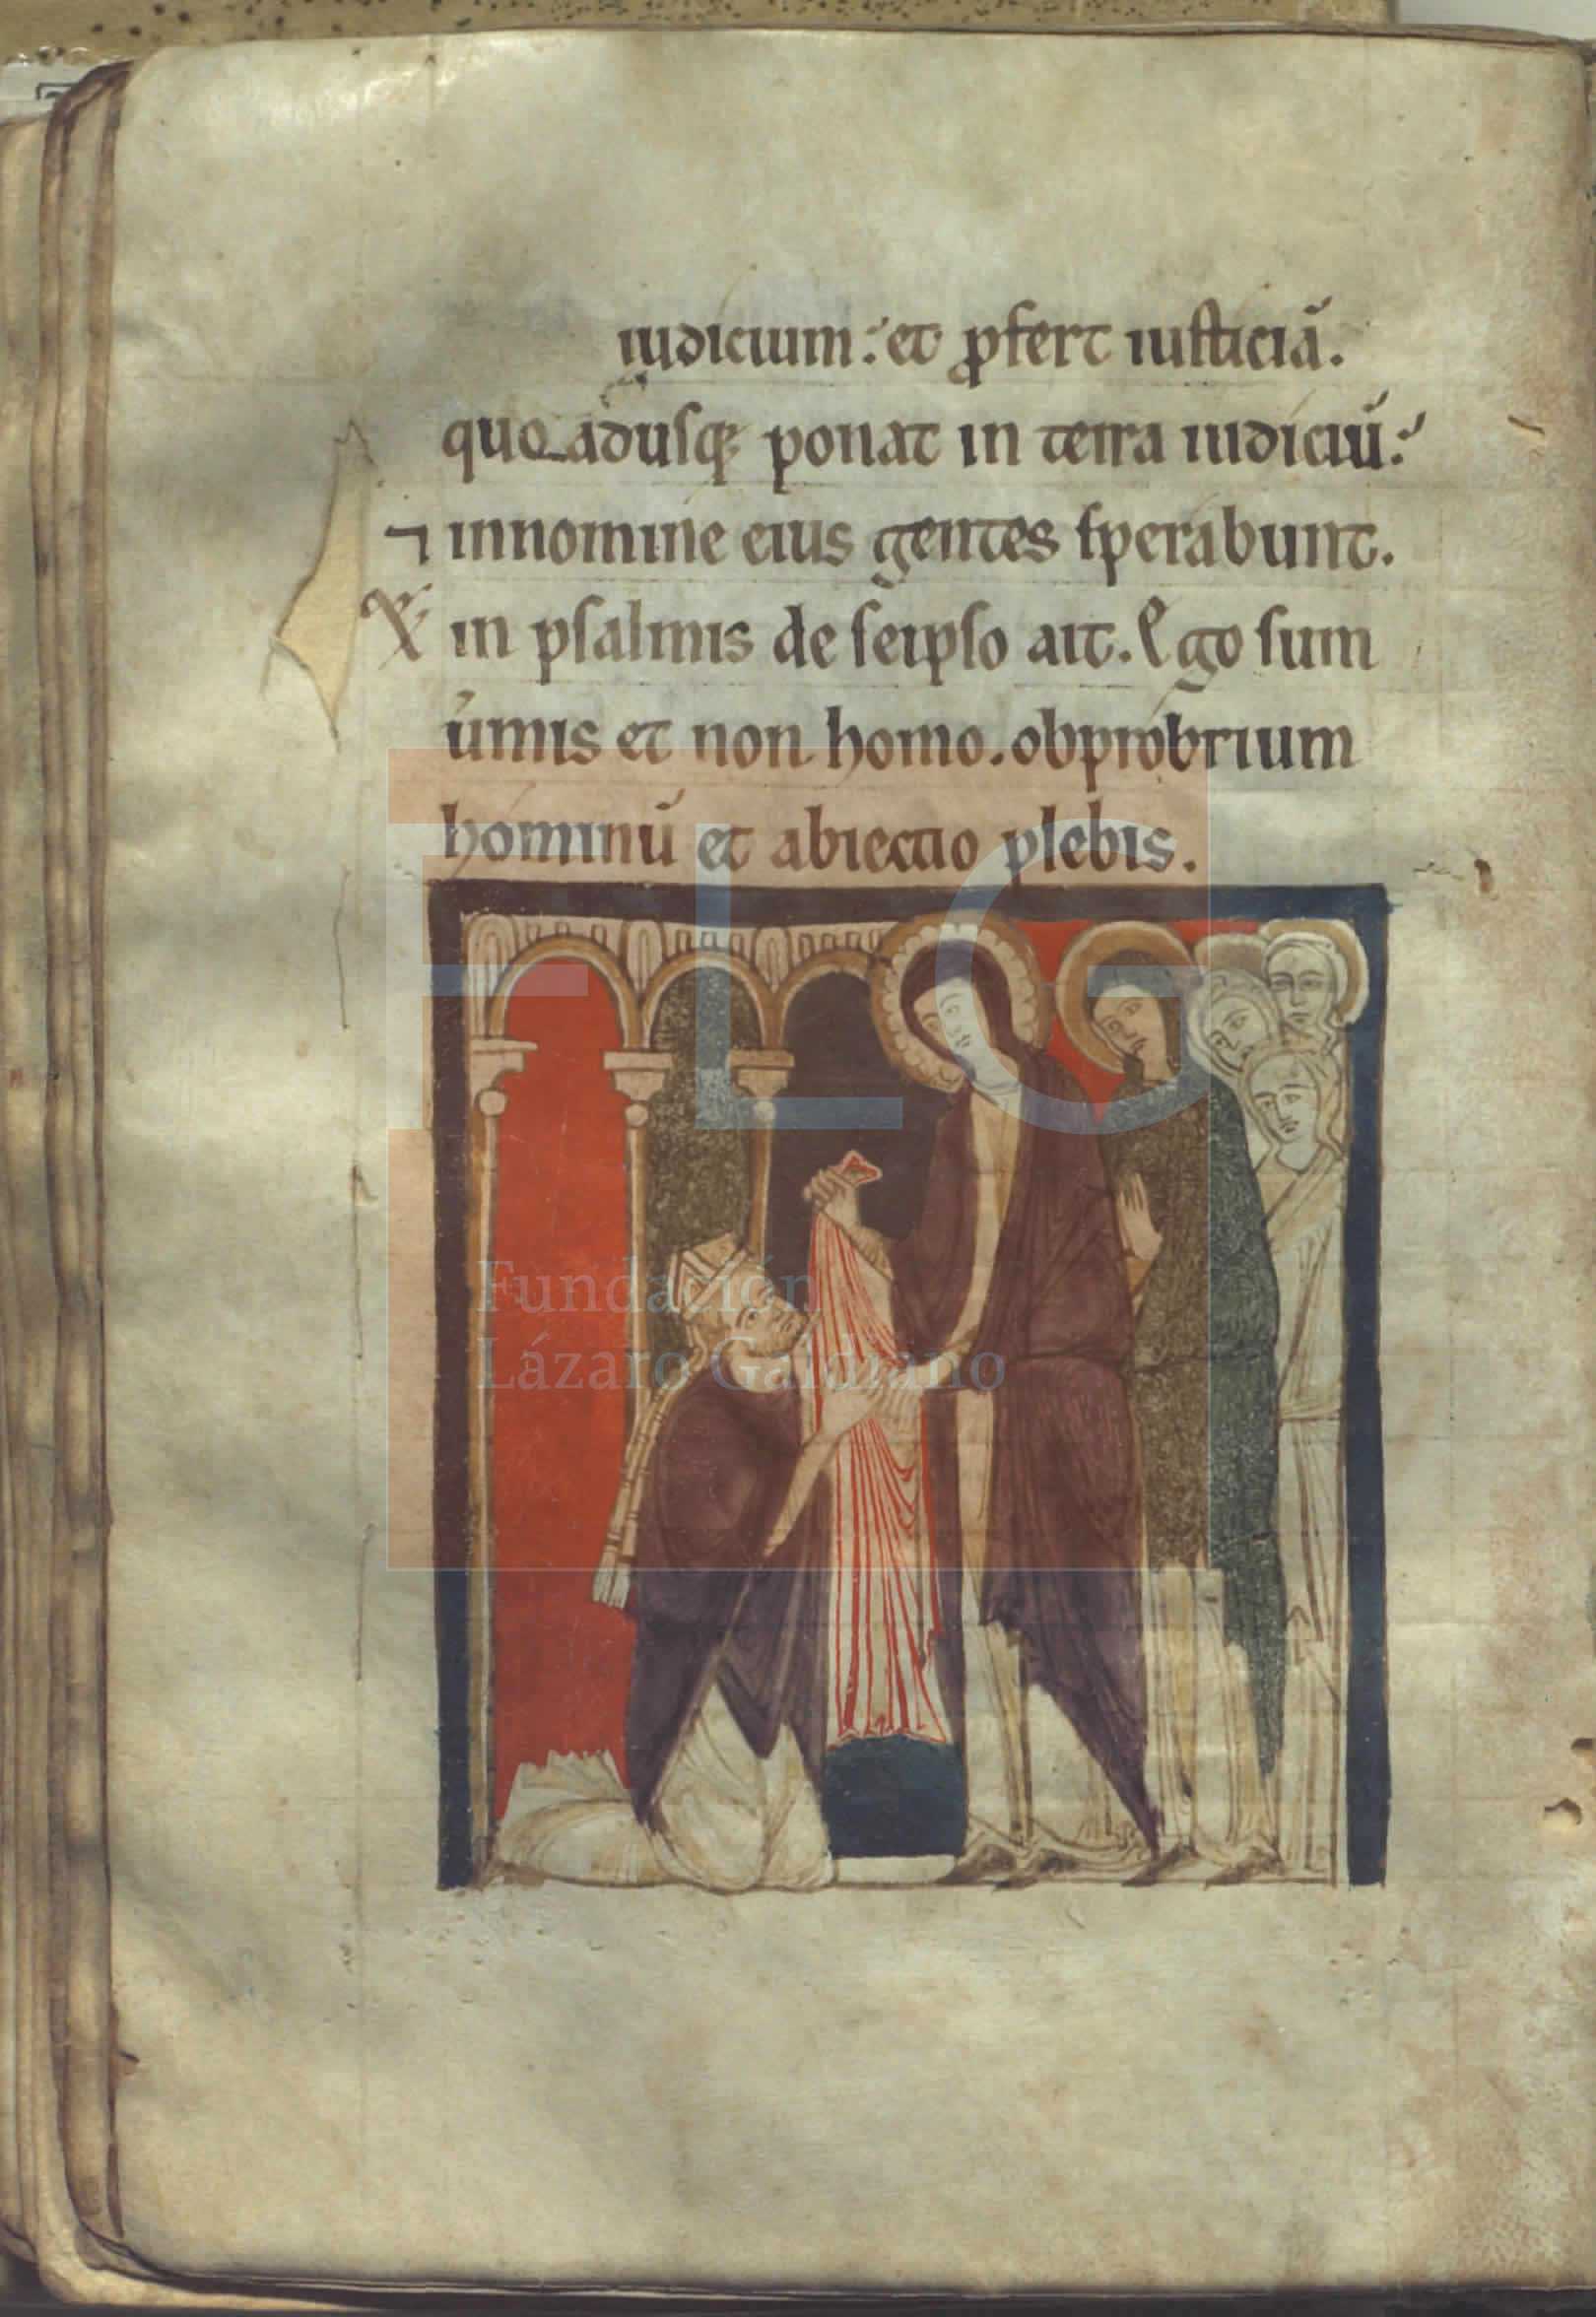 iudicium: et ꝓfert iusticiā.
quo adusq; ponat in terra iudiciū:
⁊ innomine eius gentes sperabunt.
in psalmis de seipso ait. Ego sum
ůmis et non homo. obprobrium
hominū et abiectio plebis.
FLG
Fundación
Lázaro Galdiano